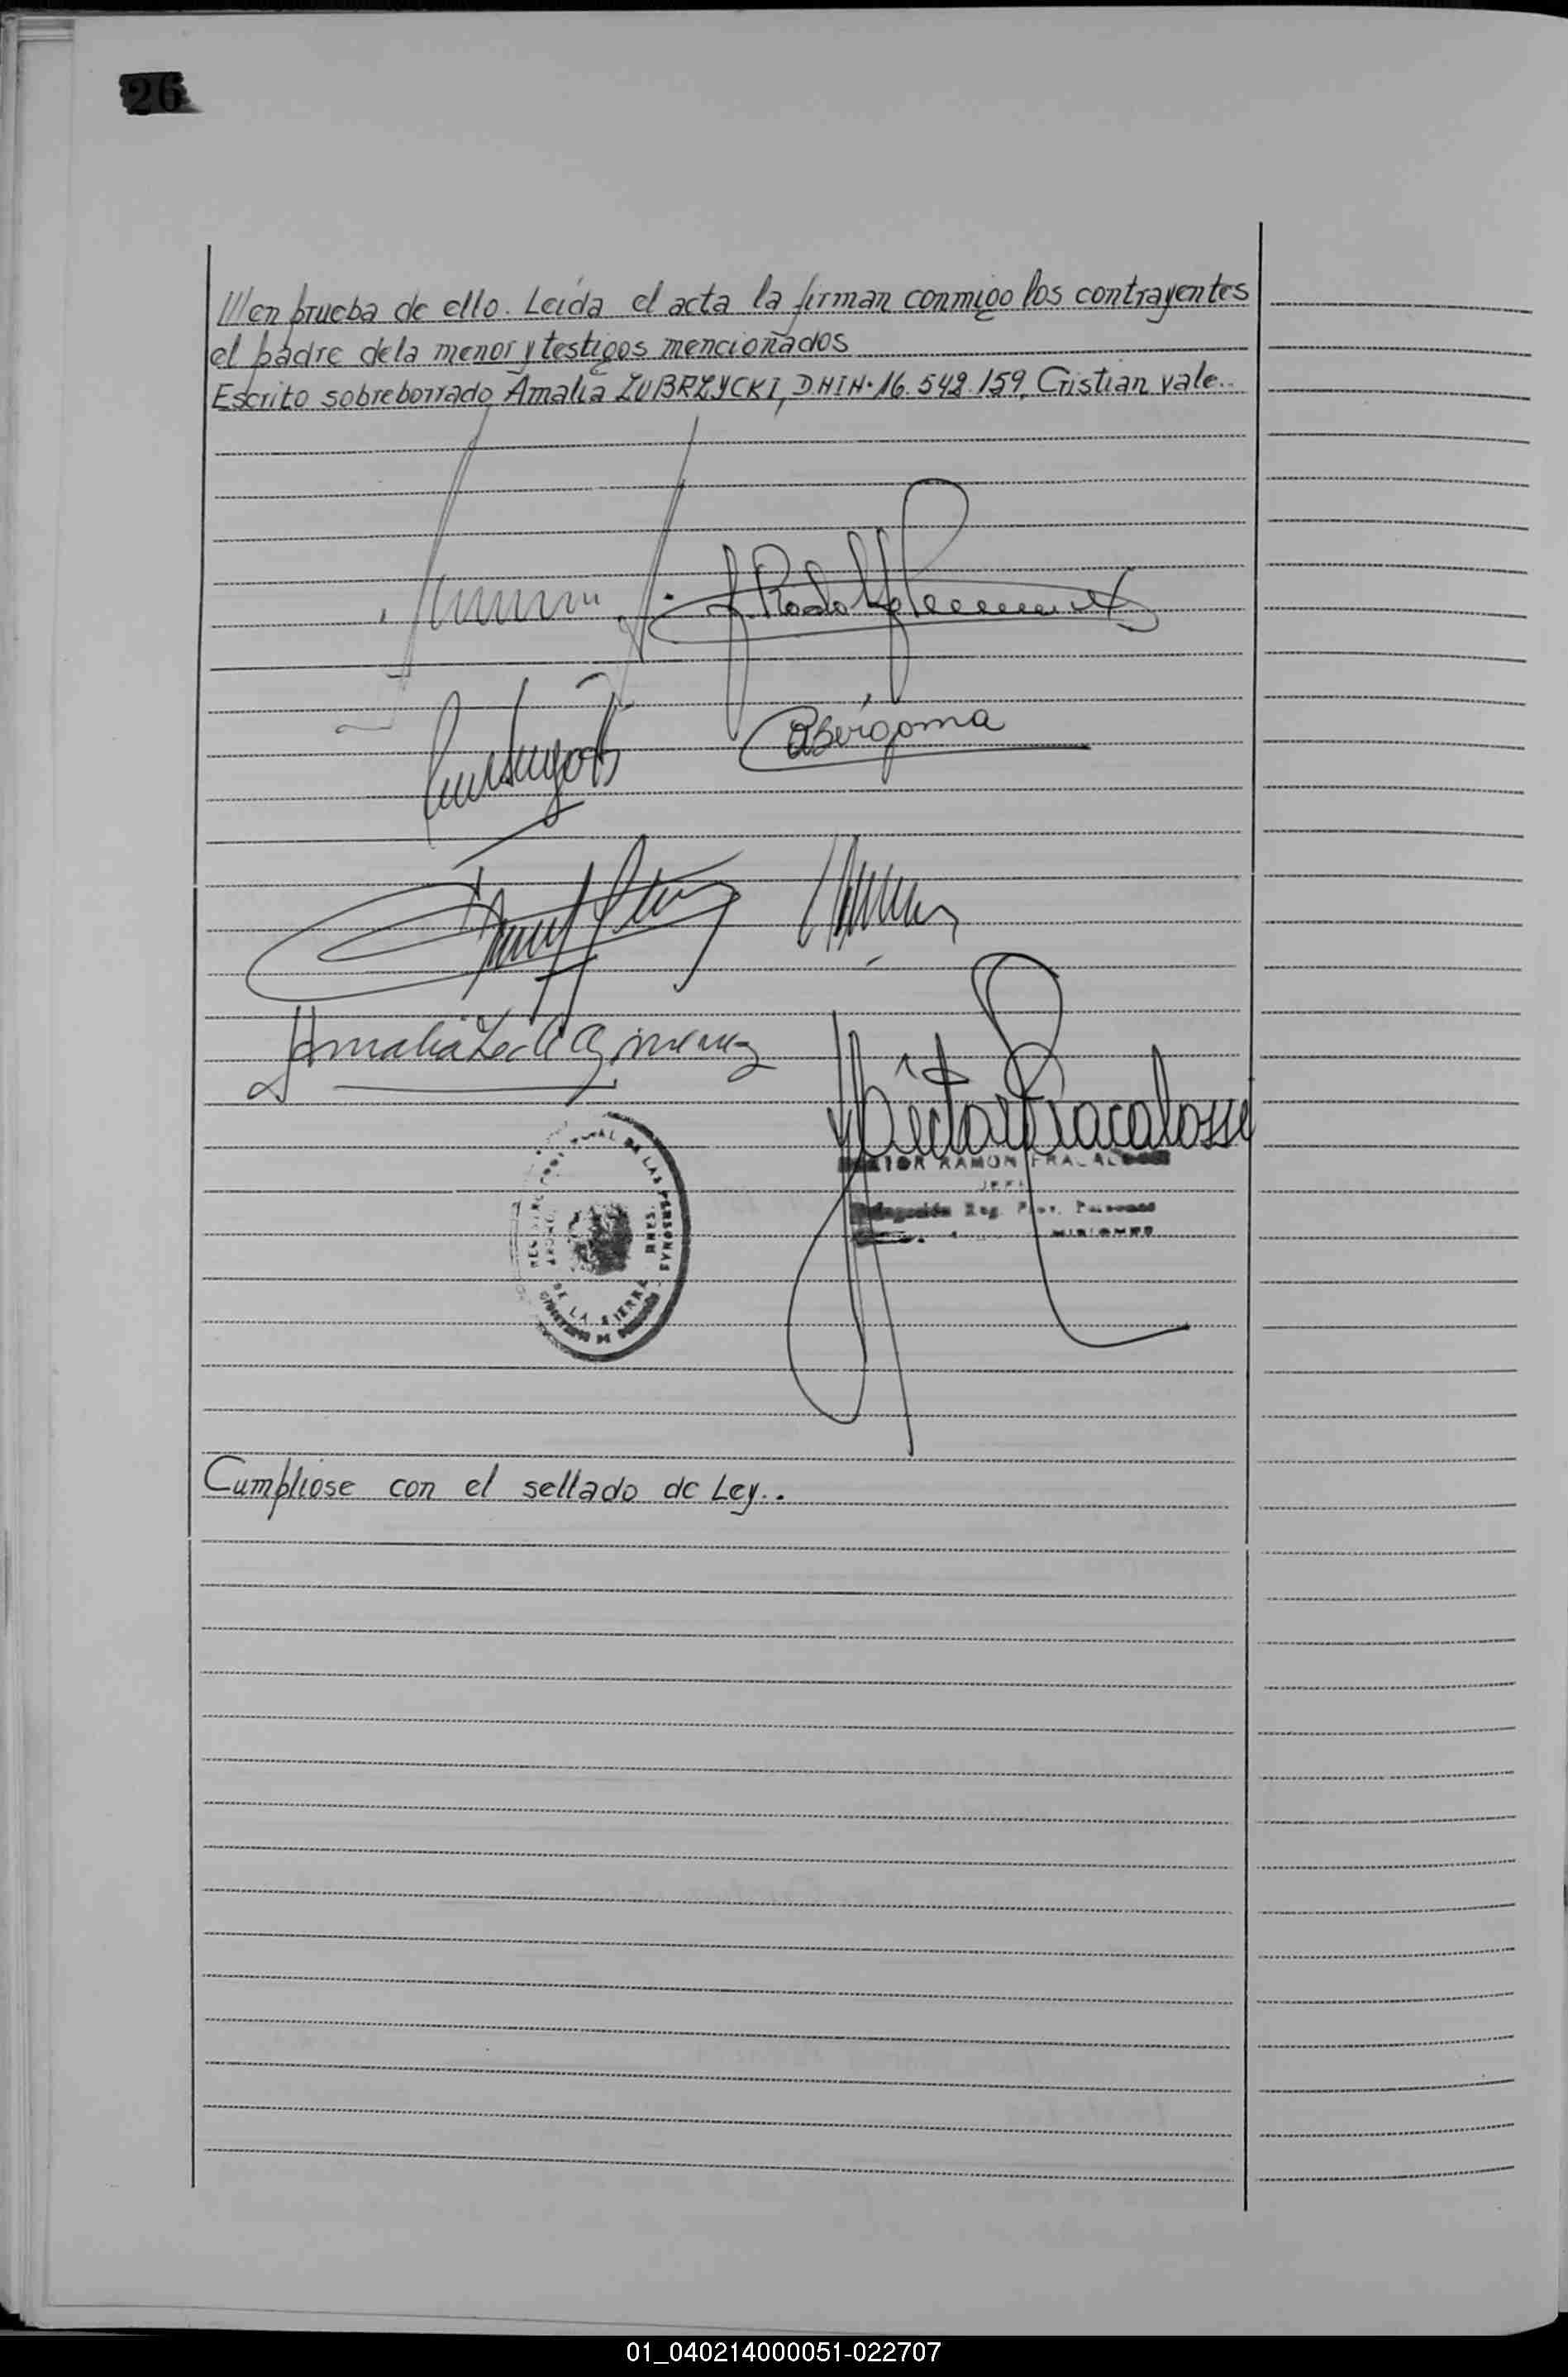 26
///en prueba de ello. Leída el acta la firman conmigo los contrayentes
el padre dela menor y testigos mencionados
Escrito sobreborrado Amalia ZUBRZYCKI, D.N.I.N° 16.542.159, Cristian vale..
Rodolfo
ABergoma
Amalia Z de Gimenez
Hector Fracalossi
HECTOR RAMON FRACALOSSI
JEFE
Delegación Reg. Prov. Personas
MISIONES
DE LAS PERSONAS
DE LA SIERRA
Cumpliose con el sellado de Ley..
01_040214000051-022707